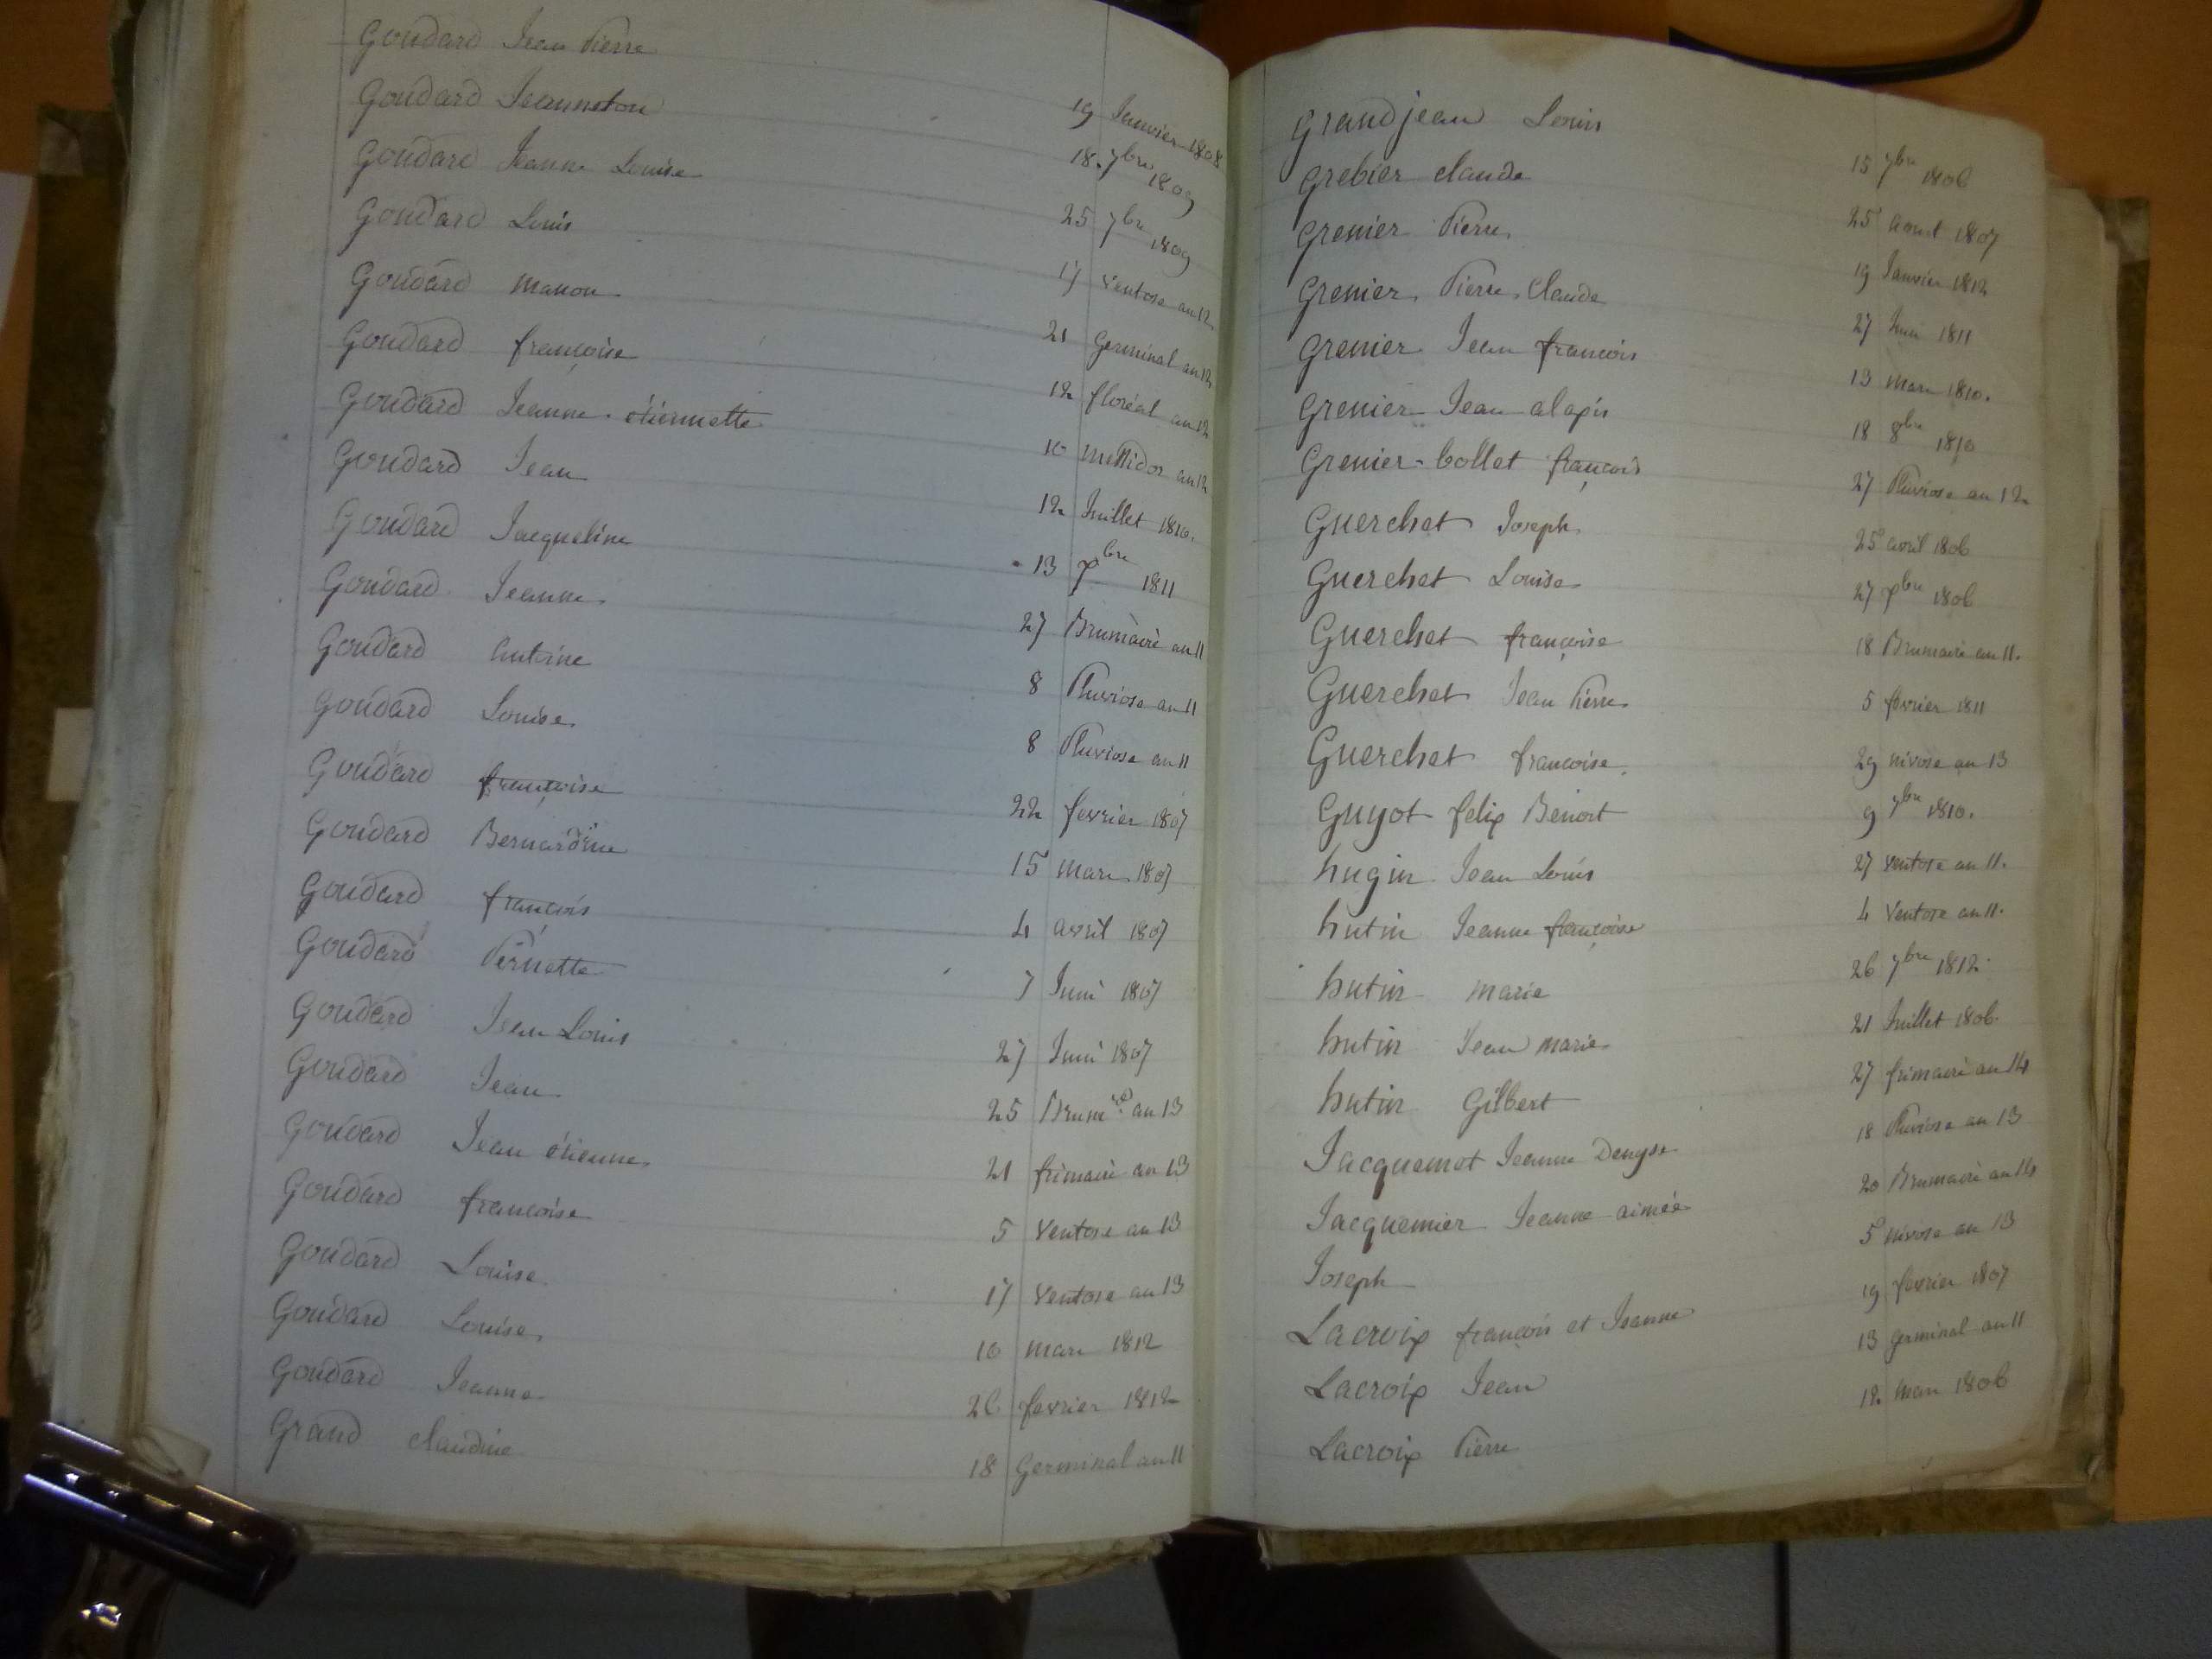 Goudard Jean Pierre 19 Janvier 1808
Goudard Jeanneton 18 7bre 1809
Goudard Jeanne Louise 25 7bre 1809
Goudard Louis 17 ventose an 12
Goudard manon 21 Germinal an 12
Goudard françoise 12 floréal an 12
Goudard Jeanne étiennette 10 Messidor an 12
Goudard Jean 12 Juillet 1810.
Goudard Jacqueline 13 Xbre 1811
Goudard Jeanne 27 Brumaire an 11
Goudard Antoine 8 Pluviose an 11
Goudard Louise 8 Pluviose an 11
Goudard françoise 22 fevrier 1807
Goudard Bernardine 15 mars 1807
Goudard françois 4 avril 1807
Goudard Pernette 7 Juin 1807
Goudard Jean Louis 27 Juin 1807
Goudard Jean 25 Brumre an 13
Goudard Jean étienne 21 frimaire an 13
Goudard francoise 5 ventose an 13
Goudard Louise 17 ventose an 13
Goudard Louise 10 mars 1812
Goudard Jeanne 26 fevrier 1812
Grand claudine 18 Germinal an 11
Grandjean Louis 15 7bre 1806
Grebier claude 25 aout 1807
Grenier Pierre 19 Janvier 1812
Grenier Pierre Claude 27 Juin 1811
Grenier Jean francois 13 mars 1810.
Grenier Jean alexis 18 8bre 1810
Grenier-bollet françois 27 Pluviose an 12
Guerchet Joseph 25 avril 1806
Guerchet Louise 27 Xbre 1806
Guerchet françoise 18 Brumaire an 11.
Guerchet Jean Pierre 5 fevrier 1811
Guerchet francoise 29 nivose an 13
Guyot felix Benoit 9 7bre 1810.
hugin Jean Louis 27 ventose an 11.
hutin Jeanne françoise 4 ventose an 11.
hutin marie 26 7bre 1812
hutin Jean marie 21 Juillet 1806.
hutin Gilbert 27 frimaire an 14
Jacquemot Jeanne Denyse 18 Pluviose an 13
Jacquemier Jeanne aimée 20 Brumaire an 14
Joseph 5 nivose an 13
Lacroix françois et Jeanne 19 fevrier 1807
Lacroix Jean 13 germinal an 11
Lacroix Pierre 12 mars 1806